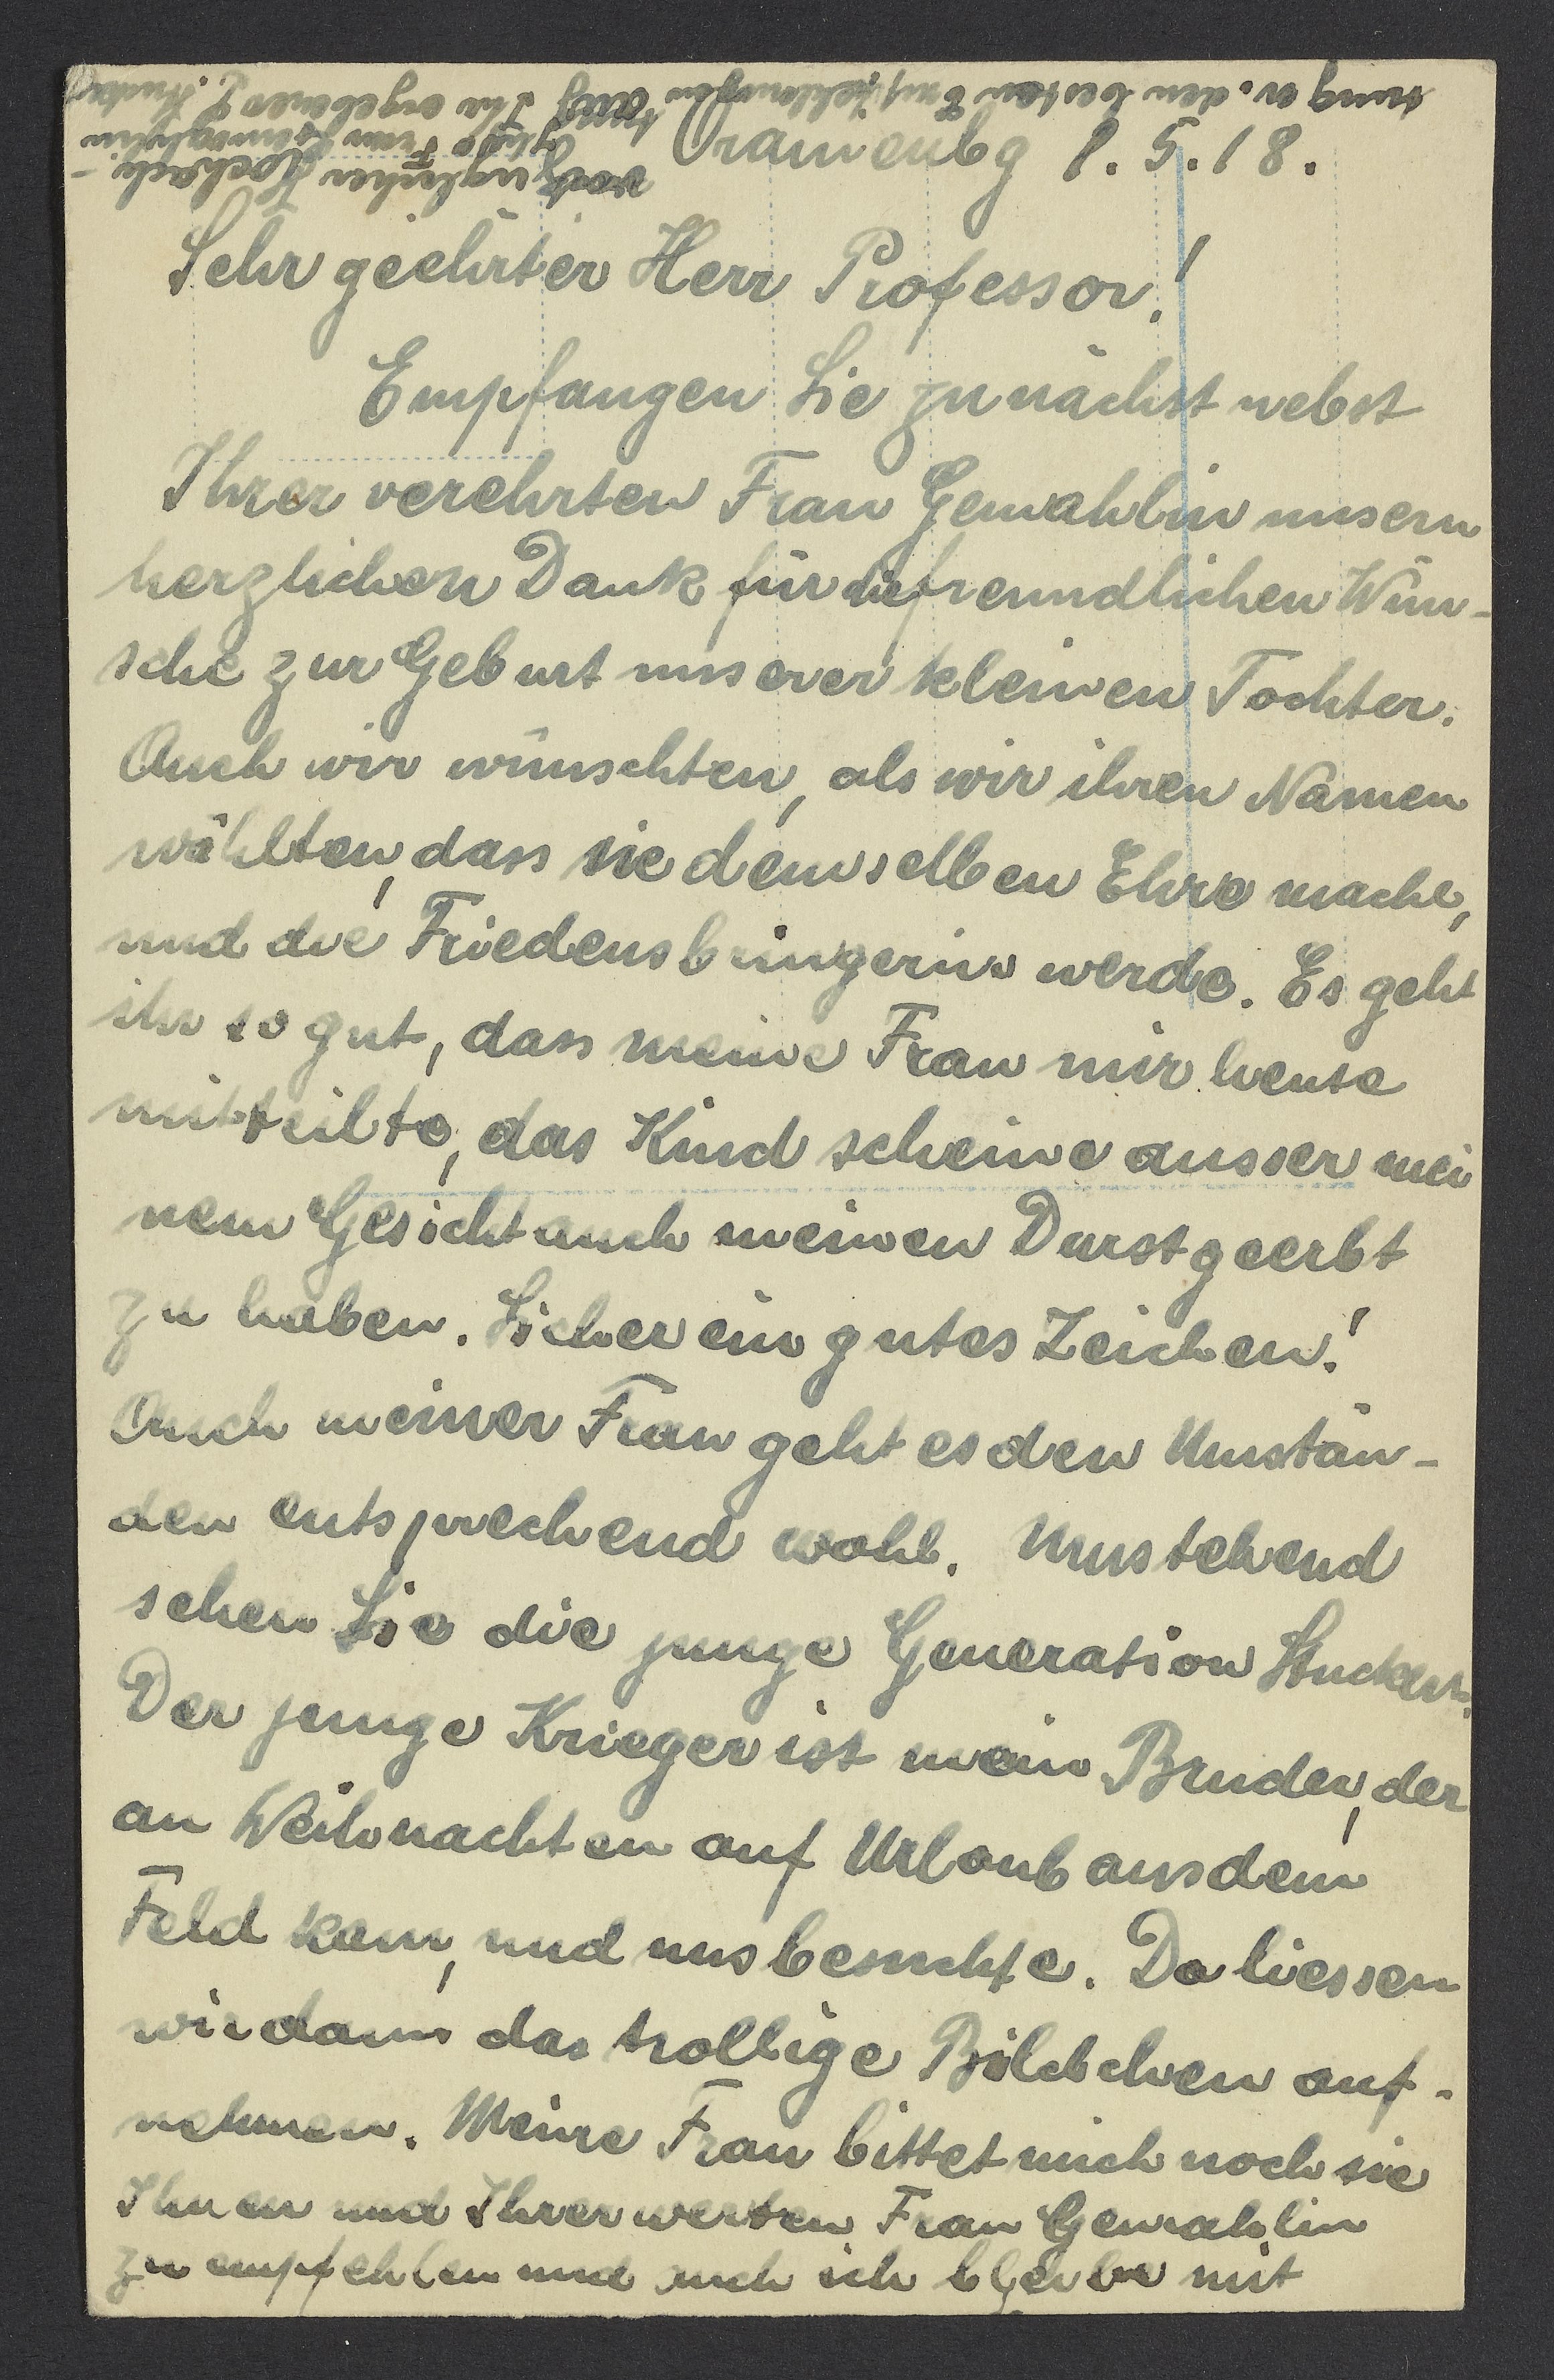 Oranienbg 1.5.18.
Sehr geehrter Herr Professor!
Empfangen Sie zunächst nebst
Ihrer verehrten Frau Gemahlin unsern
herzlichen Dank für die freundlichen Wün-
sche zur Geburt unserer kleinen Tochter.
Auch wir wünschten, als wir ihren Namen
wählten, dass sie demselben Ehre mache,
und die Friedensbringerin werde. Es geht
ihr so gut, dass meine Frau mir heute
mitteilte, das Kind scheine ausser mei
nem Gesicht auch meinen Durst geerbt
zu haben. Sicher ein gutes Zeichen!
Auch meiner Frau geht es den Umstän-
den entsprechend wohl. Umstehend
sehen Sie die junge Generation Stuckert.
Der junge Krieger ist mein Bruder, der
an Weihnachten auf Urlaub aus dem
Feld kam, und uns besuchte. Da liessen
wir dann das trollige Bildchen auf-
nehmen. Meine Frau bittet mich noch sie
Ihnen und Ihrer werten Frau Gemahlin
zu empfehlen und auch ich bleibe mit
vorzüglicher Hochach-
tung u. den besten Empfehlungen
Frau Gemahlin
Ihr ergebener